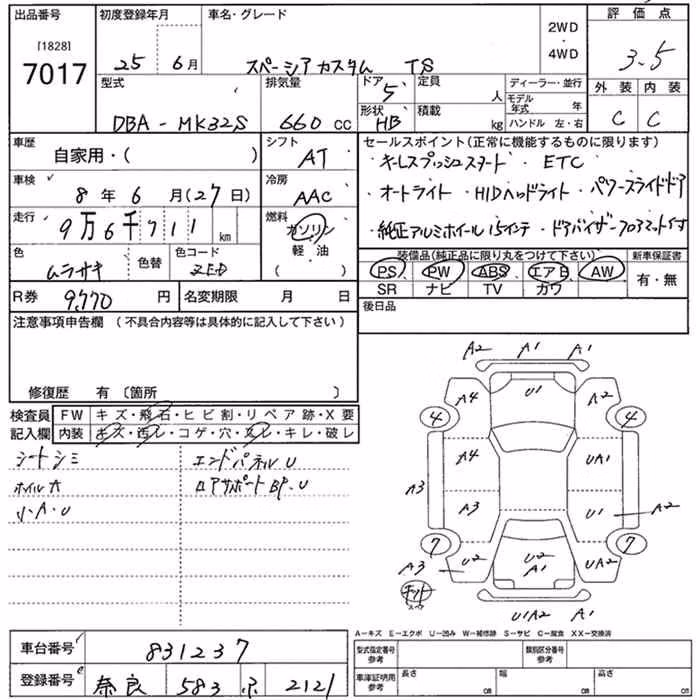 出品番号 初度登録年月 車名・グレード 評価点
[1828]
7017
25 6月 スペーシアカスタム TS
2WD・4WD
3.5
型式 排気量 ドア 5 定員 人 ディーラー・並行 外装 内装
形状 HB 積載 kg モデル年式 年
ハンドル 左・右
DBA-MK32S 660 CC
C C
車歴 シフト セールスポイント(正常に機能するものに限ります)
自家用・( ) AT ・キーレスプッシュスタート ・ETC
車検 冷房
8年 6月(27日) AAC ・オートライト ・HIDヘッドライト ・パワースライドドア
走行 燃料
9万6千711km ガソリン ・純正アルミホイル15インチ ・ドアバイザーフロアマット付
軽・油
( )
色 色替 色コード 装備品(純正品に限り丸をつけて下さい) 新車保証書
ムラサキ ZED PS PW ABS エアB AW
SR ナビ TV カワ 有・無
R券 9,770 円 名変期限 月 日 後日品
注意事項申告欄 (不具合内容等は具体的に記入して下さい)
修復歴 有〔箇所 〕
検査員 FW キズ・飛石・ヒビ割・リペア跡・X要
記入欄 内装 キズ・汚レ・コゲ・穴・スレ・キレ・破レ
シートシミ エンドパネルU
ホイルA ロアサポートBP.U
小A・U
A2 A1 A1
A4 U1 A2
4 4
A4 UA1
A3 A3 U1 A2
7 7
A3 U2 U2 A1 UA2
キット
U1A2 A1
A-キズ E-エクボ U-凹み W-補修跡 S-サビ C-腐食 XX-交換済
車台番号 831237
型式指定番号 参考 類別区分番号 参考
登録番号 奈良 583 2121
車庫証明用 参考 長さ cm 幅 cm 高さ cm